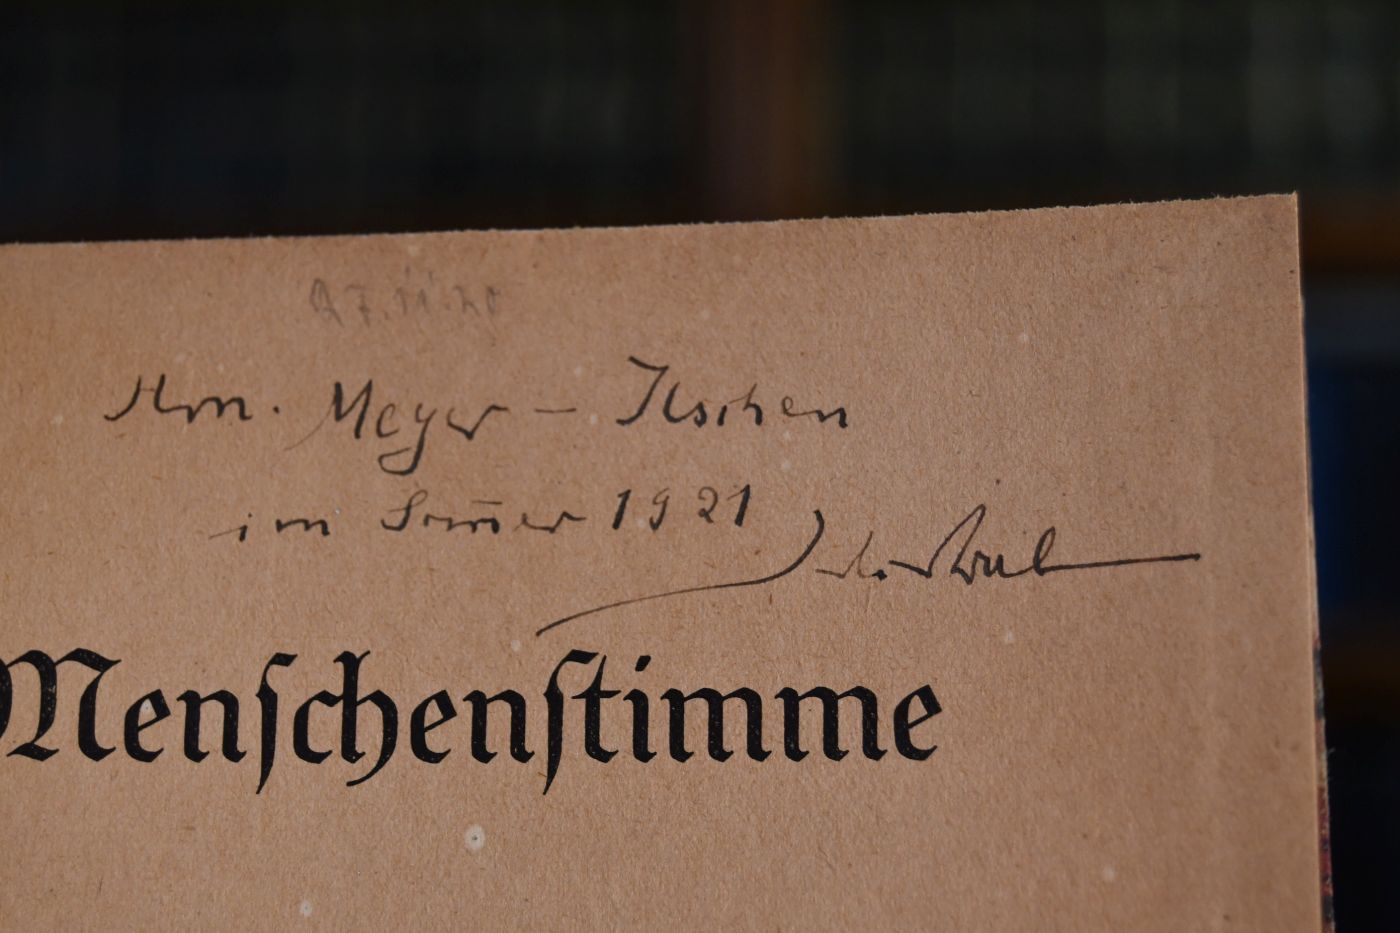 27.11.20
Hrn. Meyer – Ilschen
im Som̄er 1921
Menschenstimme